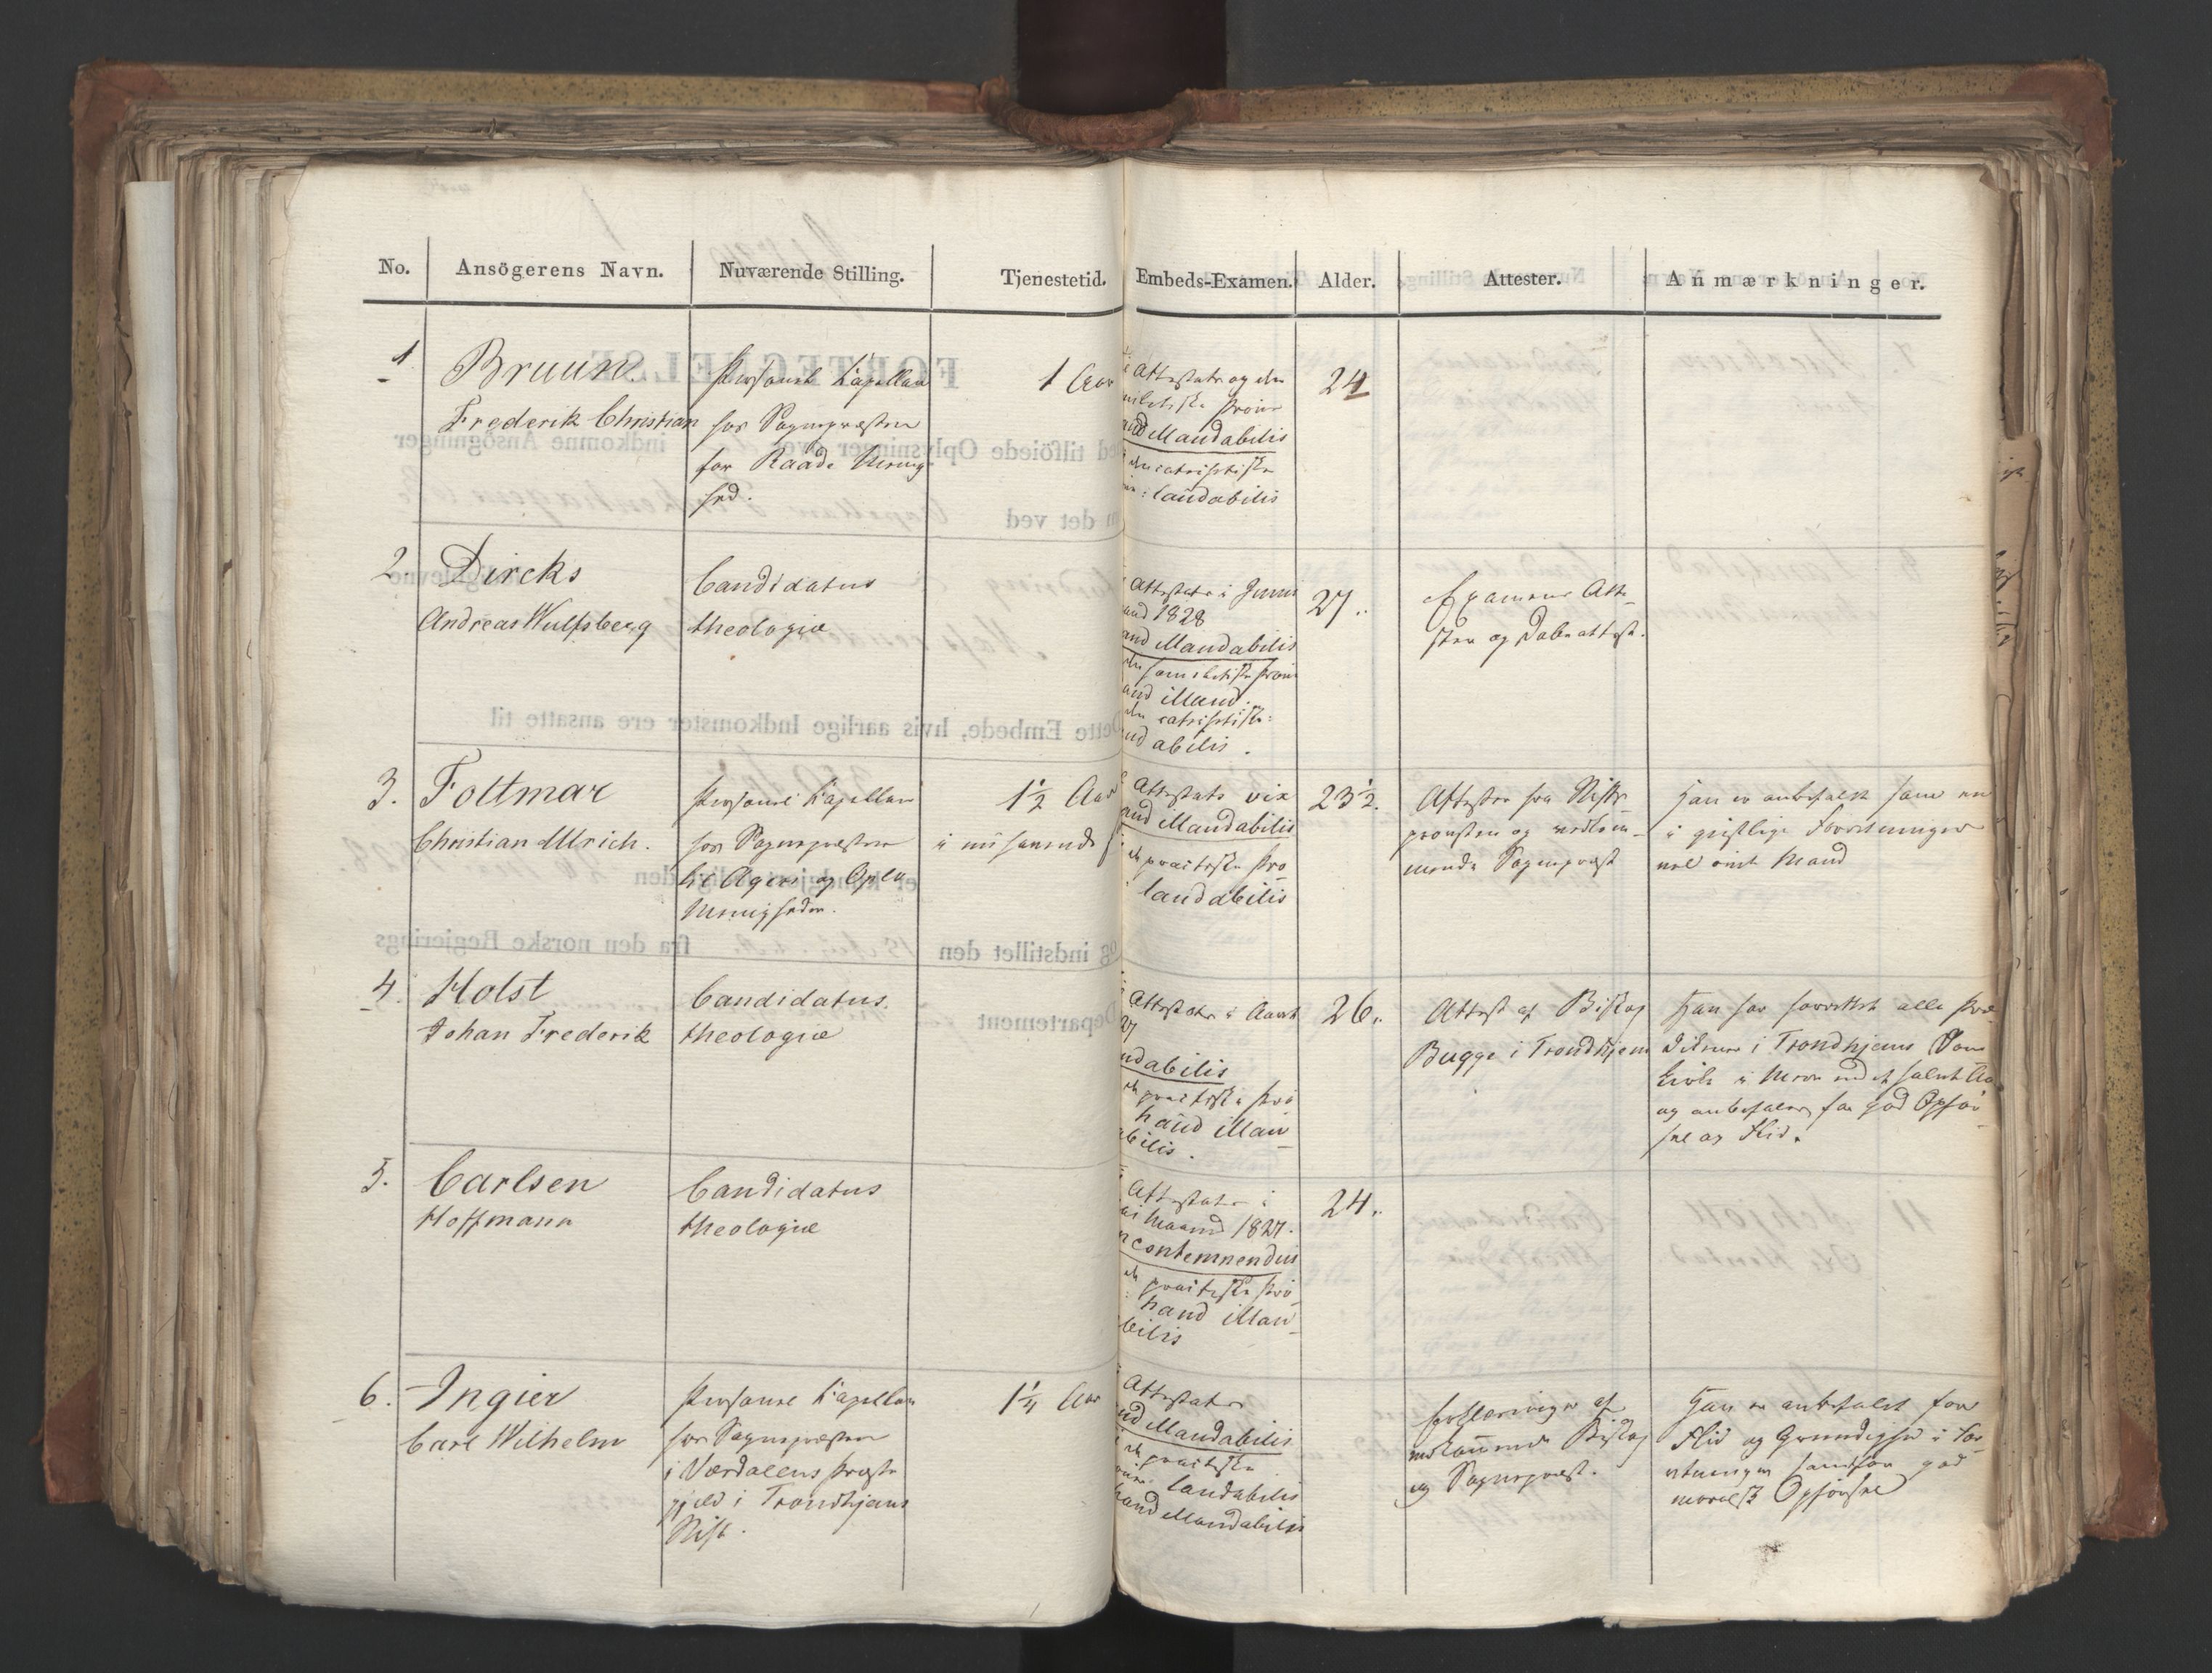 No. Ansögerens Navn. Nuværende Stilling. Tjenestetid. Embeds-Examen. Alder. Attester. Anmærkninger.
1
Bruun.
Frederik Christian
Personel Kapellan
hos Sognepræsten
for Raade Menig-
hed.
1 Aar
Attestats og den
Prøve
haud illaudabilis
laudabilis
24
2.
Dircks
Andreas Wulfsberg
Candidatus
theologiæ
Attestats i Junii
1828
haud illaudabilis
haud illaud.
27.
Examens Atte-
ster og Døbeattest.
3.
Foltmar
Christian Ulrich.
Personel Kapellan
hos Sognepræsten
til Agers og Oplu
Menigheder.
1½ Aar
Attestats vix
haud illaudabilis
practiske Prø-
laudabilis
23½.
Attester fra Stifts-
provsten og vedkom-
mende Sognepræst
Han er anbefalet som en
i geistlige Forretninger
vel øvet Mand
4.
Holst
Johan Frederik
Candidatus
theologiæ
Attestats i Aaret
practiske Prø-
haud illau-
abilis.
26.
Attest af Biskop
Bugge i Trondhjem
Han har forrettet alle Præ-
dikener i Trondhjems Dom-
kirke i Meer end et halvt Aar
og anbefales for god Opfør-
sel og Flid.
5.
Carlsen
Hoffmann
Candidatus
theologiæ
Attestats i
Maaned 1827.
contemnendus
practiske Prø-
haud illau-
bilis
24.
6.
Ingier
Carl Wilhelm
Personel Kapellan
hos Sognepræsten
i Værdalens Præste-
gjeld i Trondhjems
Stift.
1¼ Aar
Attestats
haud illaudabilis
practiske
laudabilis
haud illaudabilis
af
vedkommende Biskop
og Sognepræst.
Han er anbefalet for
Flid og Grundighed i For-
retninger samt for god
moralsk Opførsel